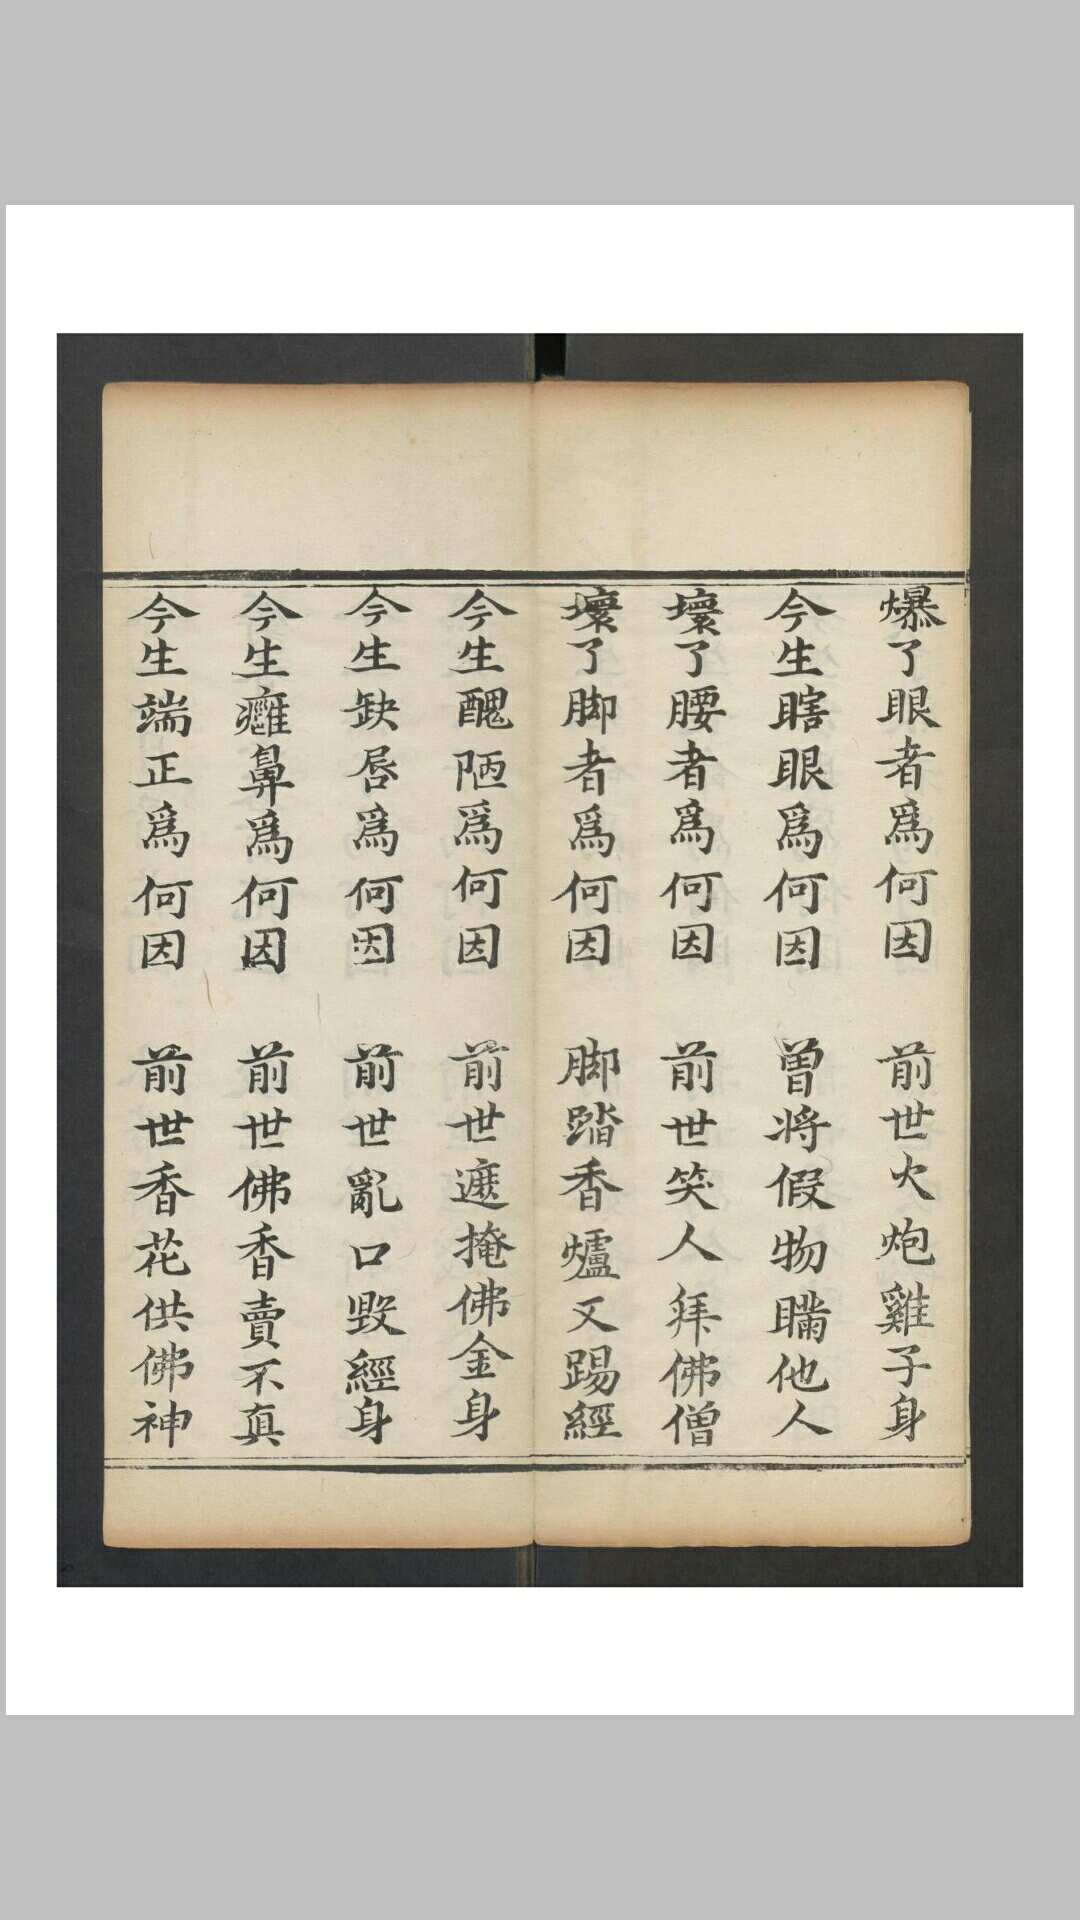 爆了眼者爲何因　前世火炮雞子身
今生瞎眼爲何因　曾將假物瞞他人
壞了腰者爲何因　前世笑人拜佛僧
壞了脚者爲何因　脚踏香爐又踢經
今生醜陋爲何因　前世遮掩佛金身
今生缺唇爲何因　前世亂口毀經身
今生癰鼻爲何因　前世佛香賣不真
今生端正爲何因　前世香花供佛神